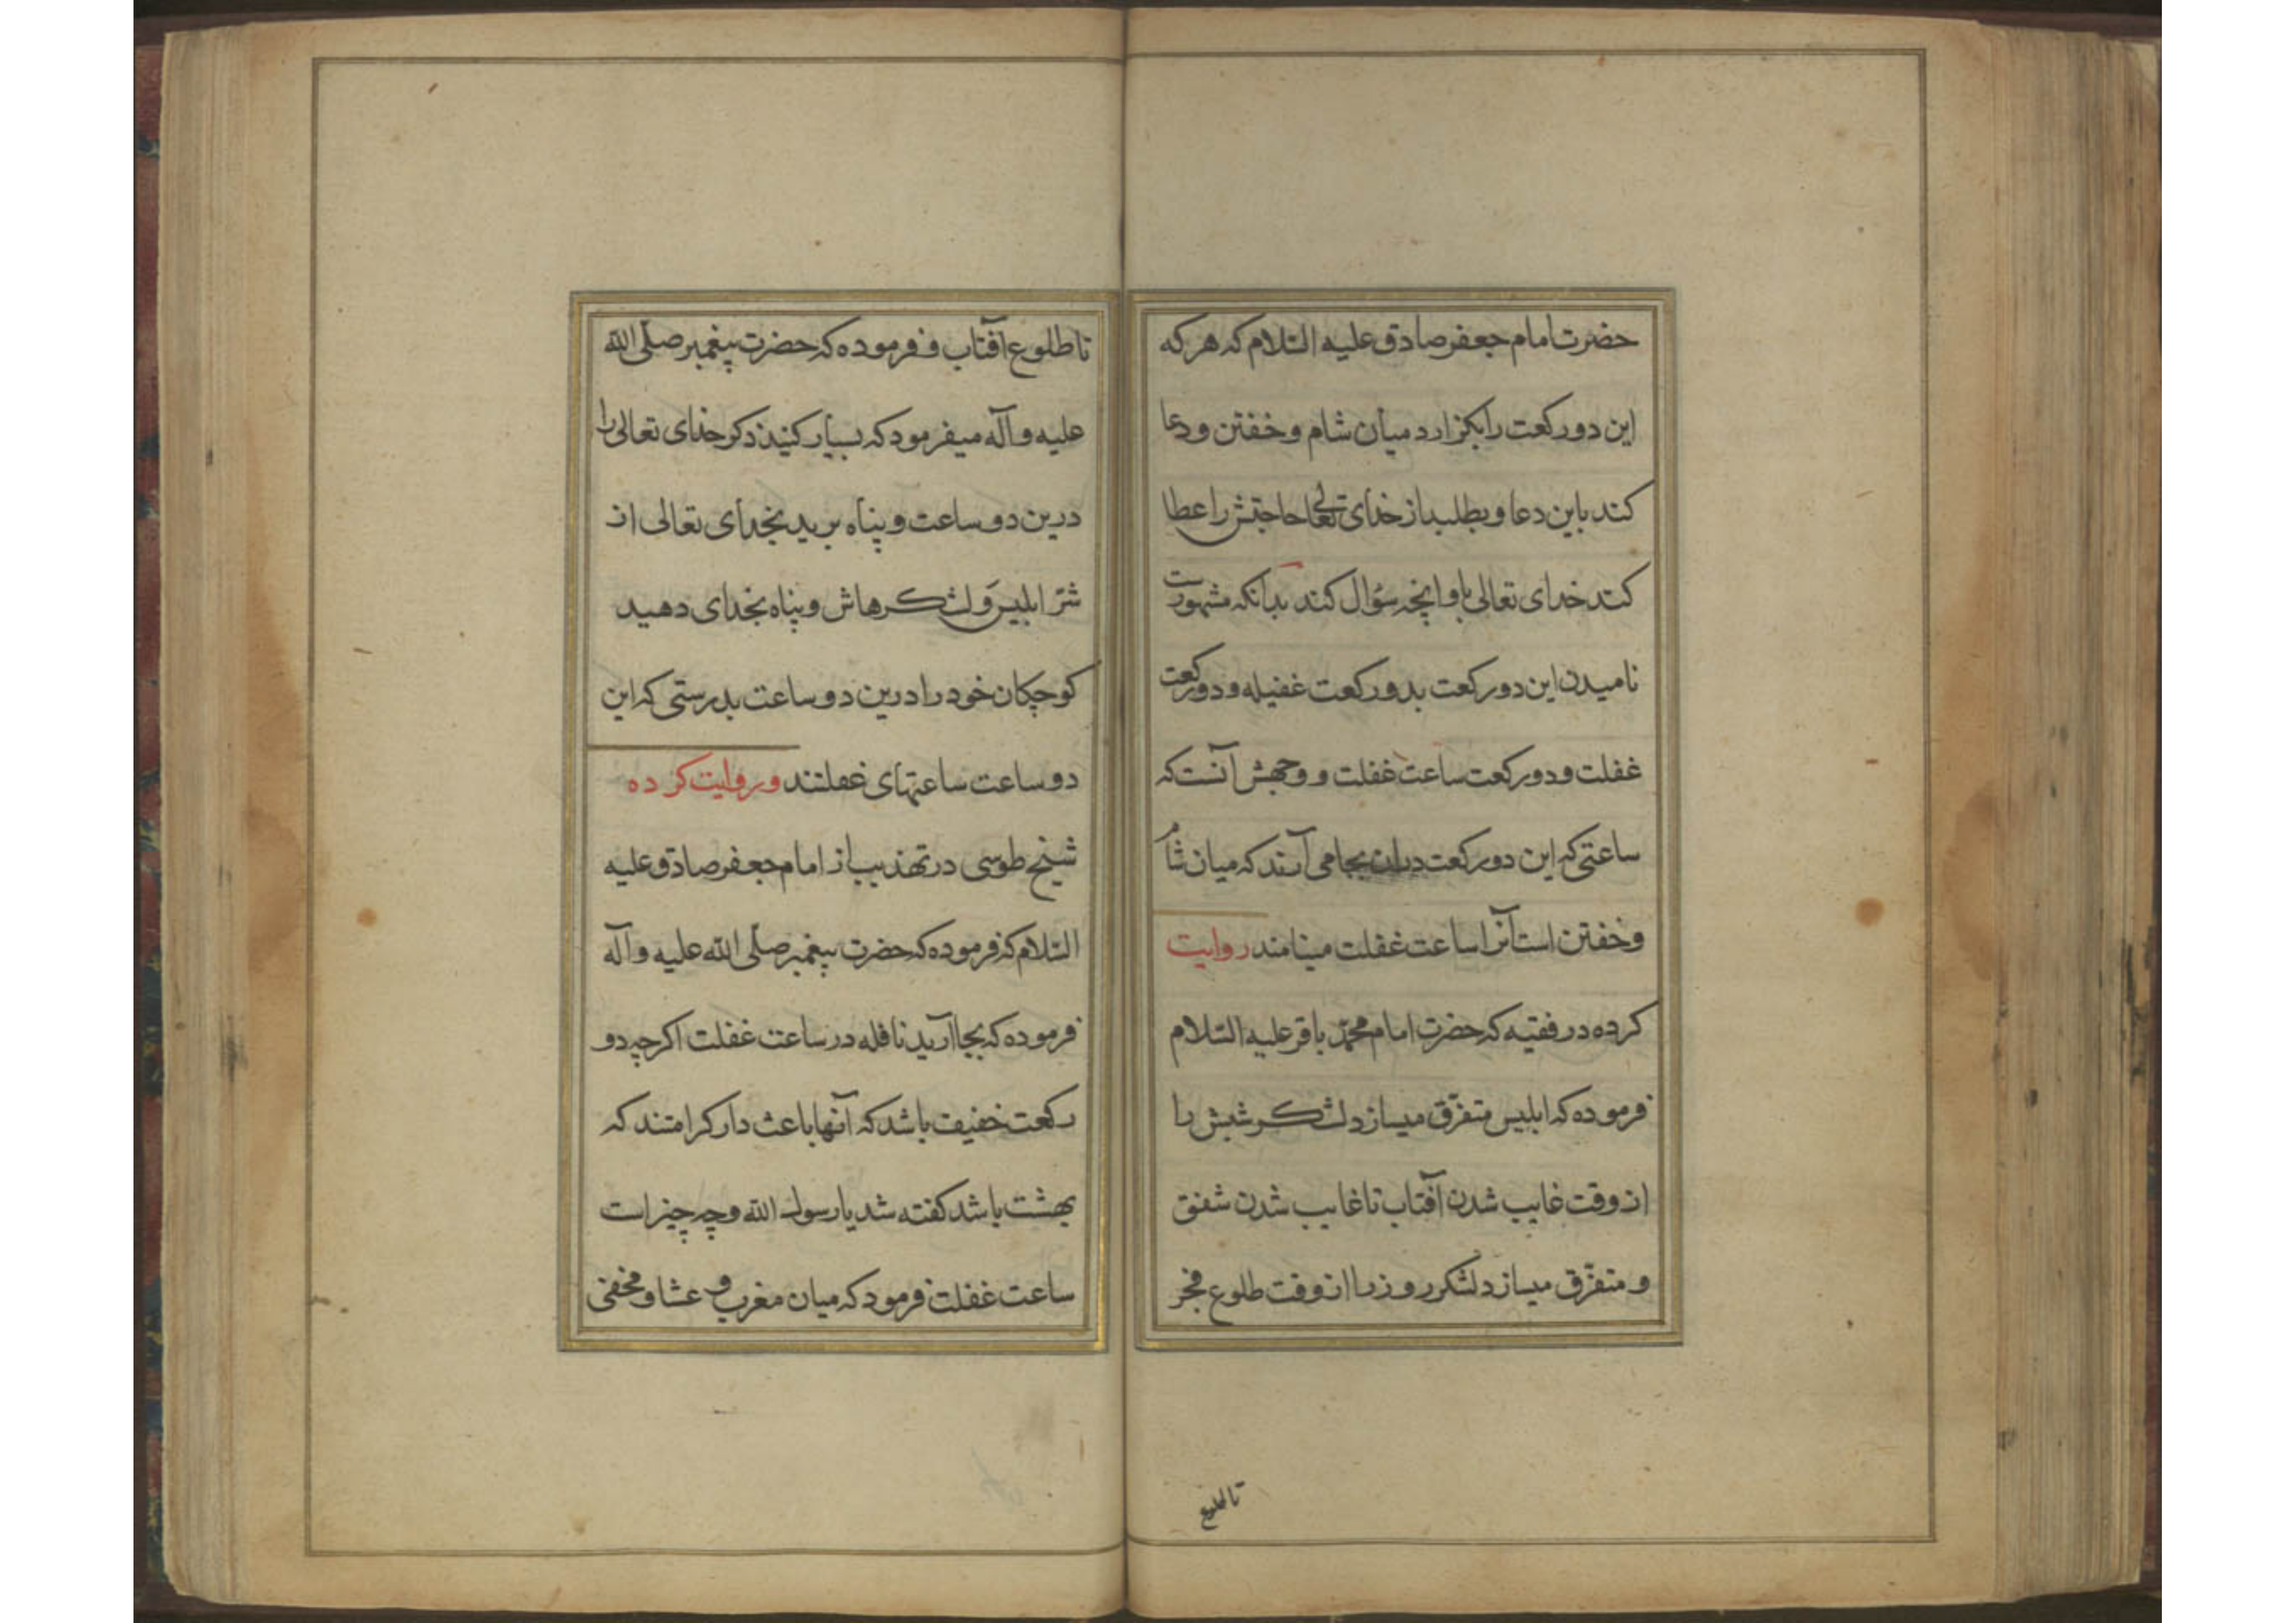 حضرت امام جعفر صادق علیه السّلام که هر که
این دو رکعت را بگزارد میان شام و خفتن و دعا
کند باین دعا و بطلبد از خدای تعالی حاجتش را عطا
کند خدای تعالی باو انچه سؤال کند بدانکه مشهورست
نامیدن این دو رکعت بدو رکعت غفیله و دو رکعت
غفلت و دو رکعت ساعت غفلت و وجهش آنست که
ساعتی که این دو رکعت دران بجا می آرند که میان شام
و خفتن است آنرا ساعت غفلت مینامند روایت
کرده در فقیه که حضرت امام محمّد باقر علیه السّلام
فرموده که ابلیس متفرّق میسازد لشکر شبش را
از وقت غایب شدن آفتاب تا غایب شدن شفق
و متفرّق میسازد لشکر روز را از وقت طلوع فجر
تا طلوع
تا طلوع آفتاب و فرموده که حضرت پیغمبر صلّی الله
علیه و آله میفرمود که بسیار کنید ذکر خدای تعالی را
درین دو ساعت و پناه برید بخدای تعالی از
شرّ ابلیس و لشکرهاش و پناه بخدای دهید
کوچکان خود را درین دو ساعت بدرستی که این
دو ساعت ساعتهای غفلتند و روایت کرده
شیخ طوسی در تهذیب از امام جعفر صادق علیه
السّلام که فرموده که حضرت پیغمبر صلّی الله علیه و آله
فرموده که بجا آرید نافله در ساعت غفلت اگرچه دو
رکعت خفیف باشد که آنها باعث دار کرامتند که
بهشت باشد گفته شد یا رسول الله و چه چیز است
ساعت غفلت فرمود که میان مغرب و عشا و مخفی